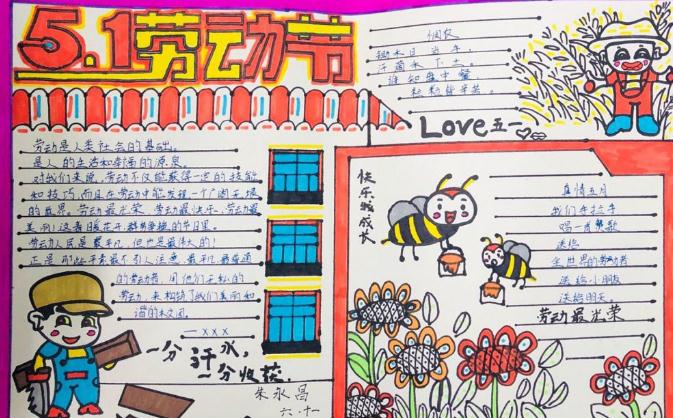 5.1劳动节
悯农
锄禾日当午，
汗滴禾下土。
谁知盘中餐
粒粒皆辛苦。
Love五一
劳动是人类社会的基础。
是人的生活和幸福的源泉。
对我们来说，劳动不仅能获得一定的技能
和技巧，而且在劳动中能发现一个广阔无垠
的世界。劳动最光荣、劳动最快乐、劳动最
美丽！这春暖花开、群鸟争艳的节日里。
劳动人民是最平凡，但也是最伟大的！
正是那些平素最不引人注意、最平凡最普通
的劳动者，用他们无私的
劳动，来构筑了我们美丽和
谐的校园。
—xxx
一分汗水，
一分收获
朱永昌
六.十一
快乐我成长
真情五月
我们手拉手
唱一首赞歌
送给
全世界的劳动者
送给小朋友
送给明天。
劳动最光荣